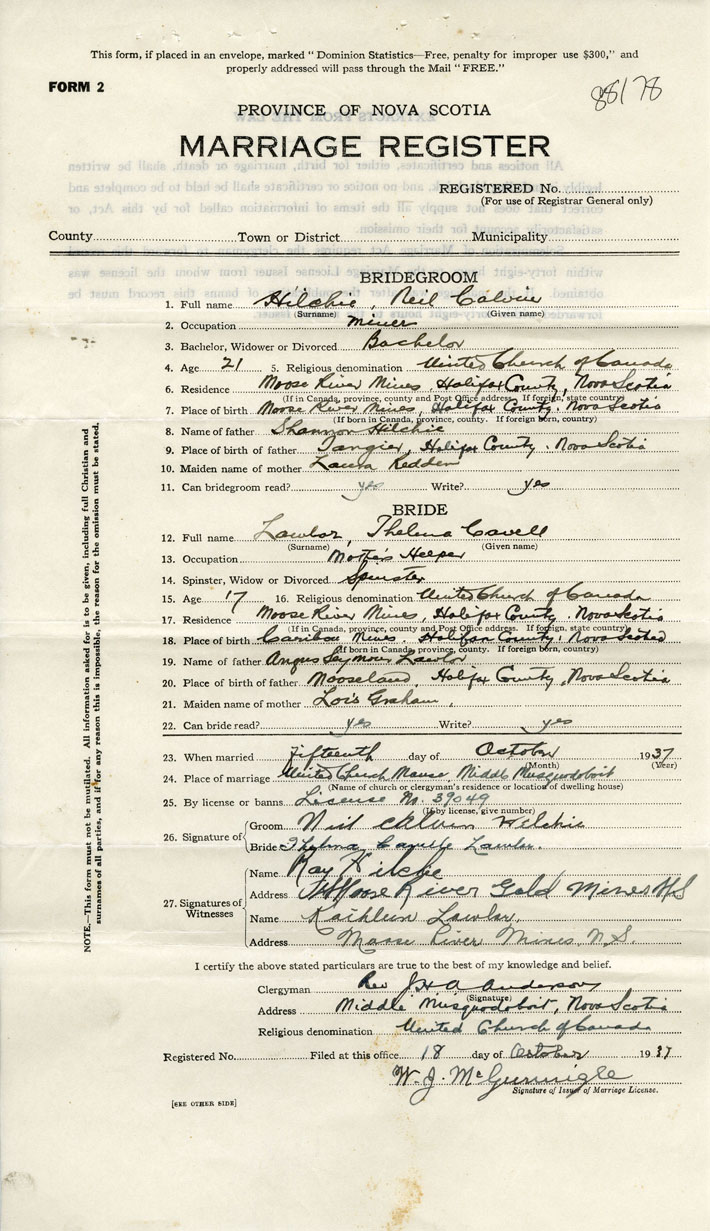 This form, if placed in an envelope, marked "Dominion Statistics—Free, penalty for improper use $300," and
properly addressed will pass through the Mail "FREE."
FORM 2
88178
PROVINCE OF NOVA SCOTIA
MARRIAGE REGISTER
REGISTERED No.
(For use of Registrar General only)
County Town or District Municipality
BRIDEGROOM
1. Full name Hilchie, Neil Calvin
(Surname) (Given name)
2. Occupation miner
3. Bachelor, Widower or Divorced Bachelor
4. Age 21 5. Religious denomination United Church of Canada
6. Residence Moose River Mines, Halifax County, Nova Scotia
(If in Canada, province, county and Post Office address. If foreign, state country)
7. Place of birth Moose River Mines, Halifax County, Nova Scotia
(If born in Canada, province, county. If foreign born, country)
8. Name of father Shannon Hilchie
9. Place of birth of father Tangier, Halifax County, Nova Scotia
10. Maiden name of mother Laura Redden
11. Can bridegroom read? yes Write? yes
BRIDE
12. Full name Lawlor, Thelma Cavell
(Surname) (Given name)
13. Occupation Mother's Helper
14. Spinster, Widow or Divorced Spinster
15. Age 17 16. Religious denomination United Church of Canada
17. Residence Moose River Mines, Halifax County, Nova Scotia
(If in Canada, province, county and Post Office address. If foreign, state country)
18. Place of birth Caribou Mines, Halifax County, Nova Scotia
(If born in Canada, province, county. If foreign born, country)
19. Name of father Angus Seymour Lawlor
20. Place of birth of father Mooseland, Halifax County, Nova Scotia
21. Maiden name of mother Lois Graham,
22. Can bride read? yes Write? yes
23. When married fifteenth day of October 1937
(Month) (Year)
24. Place of marriage United Church Manse Middle Musquodoboit
(Name of church or clergyman's residence or location of dwelling house)
25. By license or banns License No. 39049
(If by license, give number)
26. Signature of Groom Neil Calvin Hilchie
Bride Thelma Cavelle Lawlor.
27. Signatures of Witnesses Name Ray Hilchie
Address Moose River Gold Mines N S
Name Kathleen Lawlor.
Address Moose River Mines, N.S.
I certify the above stated particulars are true to the best of my knowledge and belief.
Clergyman Rev J H A Anderson
(Signature)
Address Middle Musquodoboit, Nova Scotia
Religious denomination United Church of Canada
Registered No. Filed at this office 18 day of October 1937
W. J. McGunnigle
Signature of Issuer of Marriage License.
[SEE OTHER SIDE]
NOTE.—This form must not be mutilated. All information asked for is to be given, including full Christian and
surnames of all parties, and if for any reason this is impossible, the reason for the omission must be stated.